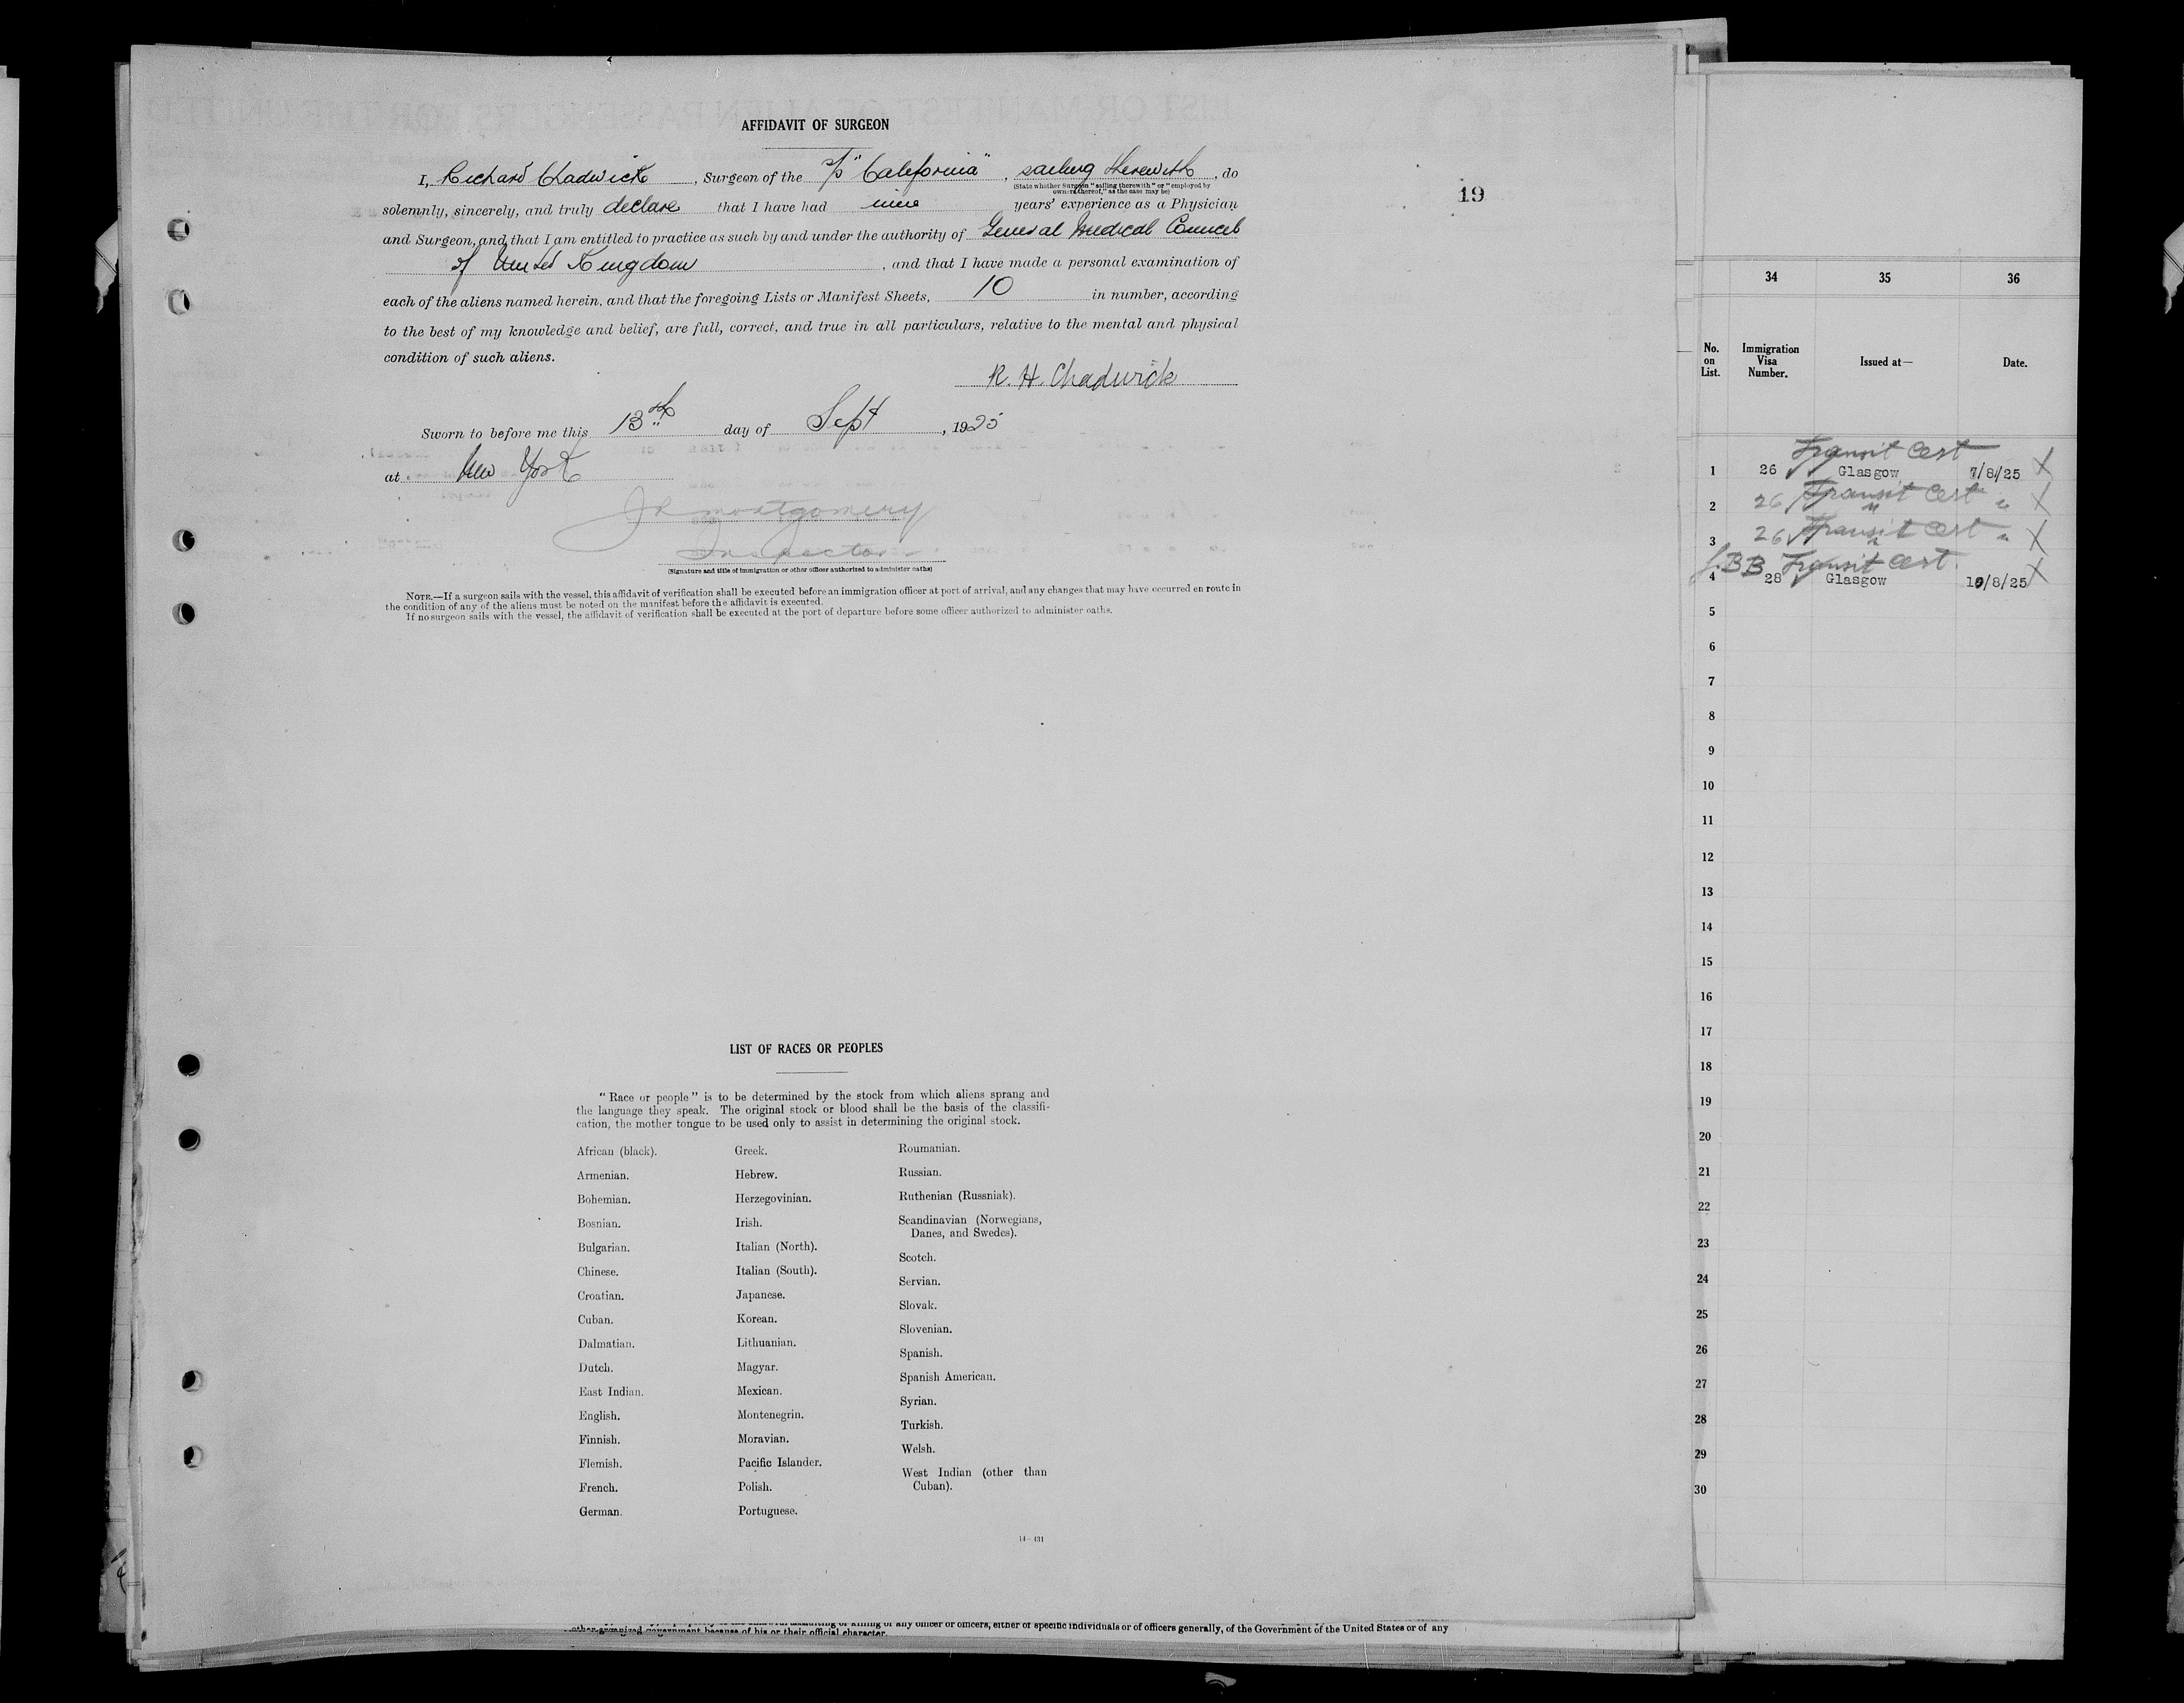 AFFIDAVIT OF SURGEON
I, Richard Chadwick, Surgeon of the S/S "California", sailing therewith, do
(State whether Surgeon "sailing therewith" or "employed by
owners thereof," as the case may be)
19
solemnly, sincerely, and truly declare that I have had nine years' experience as a Physician
and Surgeon, and that I am entitled to practice as such by and under the authority of General Medical Council
of United Kingdom, and that I have made a personal examination of
each of the aliens named herein, and that the foregoing Lists or Manifest Sheets, 10 in number, according
to the best of my knowledge and belief, are full, correct, and true in all particulars, relative to the mental and physical
condition of such aliens.
R. H. Chadwick
Sworn to before me this 13th day of Sept, 1925
at New York
Montgomery
Inspector
(Signature and title of immigration or other officer authorized to administer oaths)
NOTE.—If a surgeon sails with the vessel, this affidavit of verification shall be executed before an immigration officer at port of arrival, and any changes that may have occurred en route in
the condition of any of the aliens must be noted on the manifest before the affidavit is executed.
If no surgeon sails with the vessel, the affidavit of verification shall be executed at the port of departure before some officer authorized to administer oaths.
LIST OF RACES OR PEOPLES
"Race or people" is to be determined by the stock from which aliens sprang and
the language they speak. The original stock or blood shall be the basis of the classifi-
cation, the mother tongue to be used only to assist in determining the original stock.
African (black).
Armenian.
Bohemian.
Bosnian.
Bulgarian.
Chinese.
Croatian.
Cuban.
Dalmatian.
Dutch.
East Indian.
English.
Finnish.
Flemish.
French.
German.
Greek.
Hebrew.
Herzegovinian.
Irish.
Italian (North).
Italian (South).
Japanese.
Korean.
Lithuanian.
Magyar.
Mexican.
Montenegrin.
Moravian.
Pacific Islander.
Polish.
Portuguese.
Roumanian.
Russian.
Ruthenian (Russniak).
Scandinavian (Norwegians,
Danes, and Swedes).
Scotch.
Servian.
Slovak.
Slovenian.
Spanish.
Spanish American.
Syrian.
Turkish.
Welsh.
West Indian (other than
Cuban).
14—431
of any officer or officers, either of specific individuals or of officers generally, of the Government of the United States or of any
other organized government because of his or their official character.
34 35 36
No.
on
List.
Immigration
Visa
Number.
Issued at—
Date.
Transit Cert
1 26 Glasgow 7/8/25 X
2 26 Transit Cert " " X
3 26 Transit Cert " " X
BB Transit Cert.
4 28 Glasgow 10/8/25 X
5
6
7
8
9
10
11
12
13
14
15
16
17
18
19
20
21
22
23
24
25
26
27
28
29
30